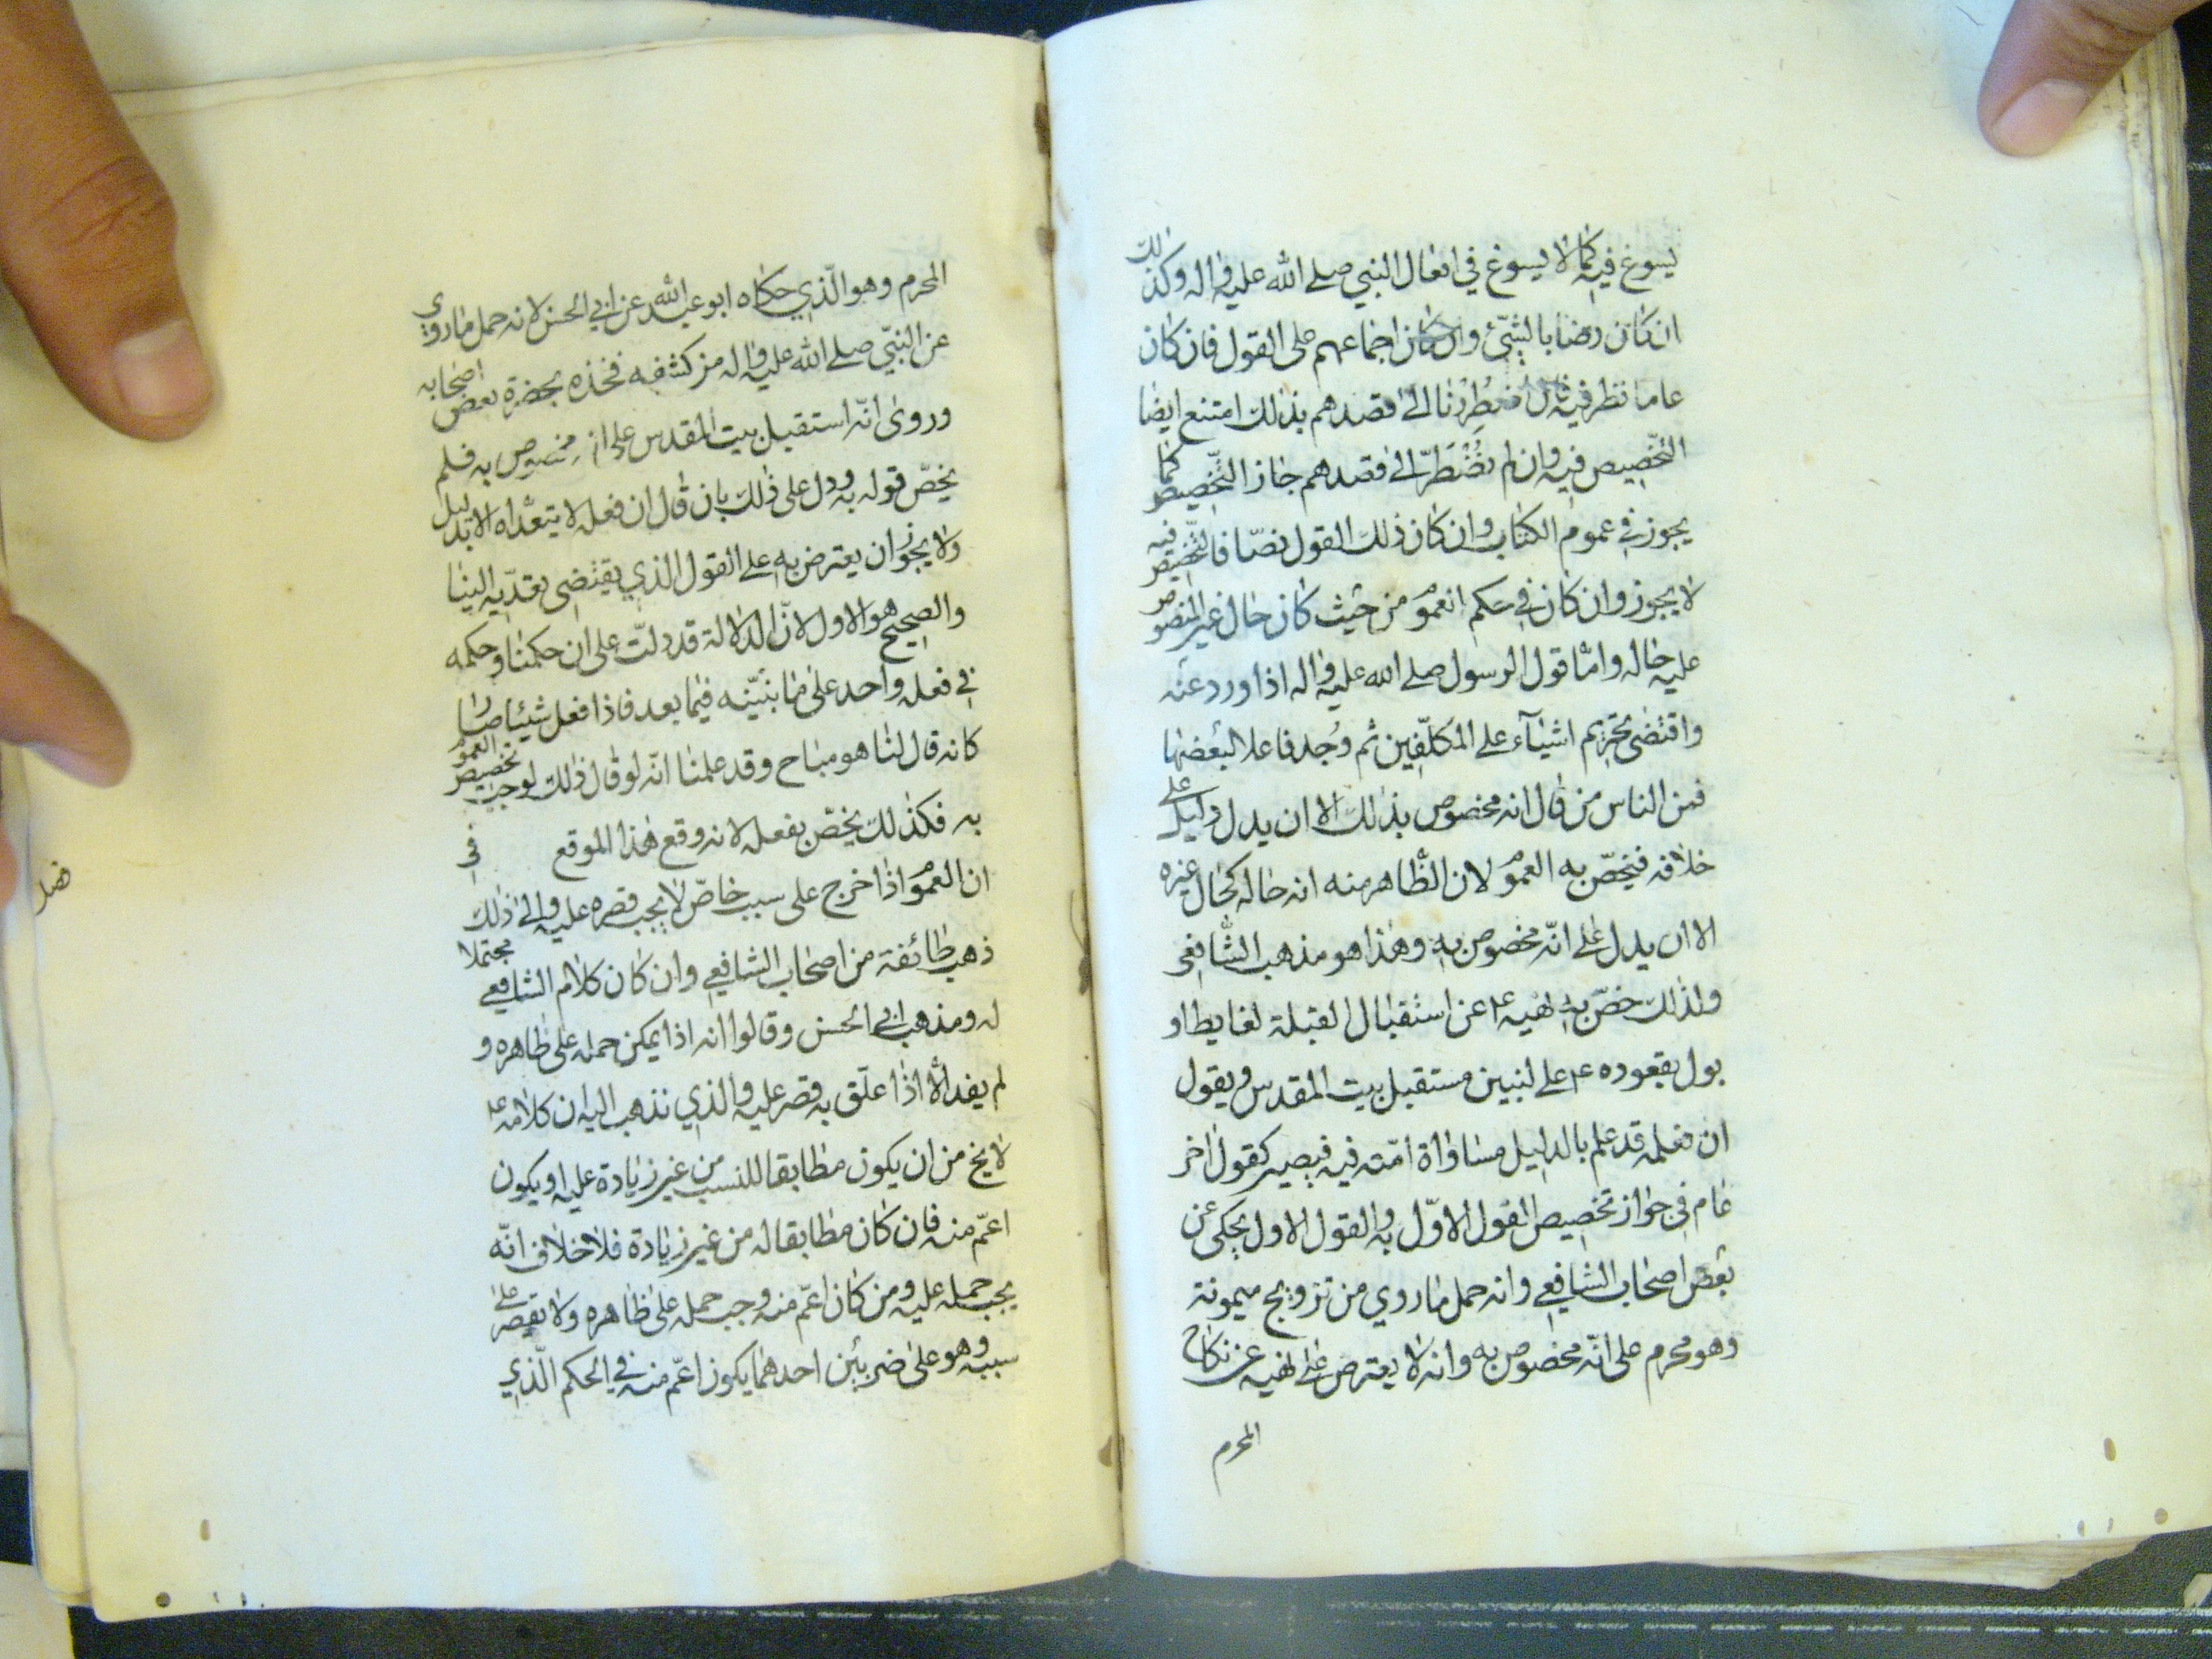 يسوغ فيه كما لا يسوغ في افعال النبي صلى الله عليه واله وكذلك
ان كان رضا بالشئ وان كان اجماعهم على القول فان كان
عاما نظر فيه فان اضطررنا الى قصدهم بذلك امتنع ايضا
التخصيص فيه وان لم نضطر الى قصدهم جاز التخصيص كما
يجوز في عموم الكتاب وان كان ذلك القول نصا فالتخصيص فيه
لا يجوز وان كان في حكم العموم من حيث كان حال غير المنصوص
عليه حاله واما قول الرسول صلى الله عليه واله اذا ورد عنه
واقتضى تحريم اشياء على المكلفين ثم وجد فاعلا لبعضها
فمن الناس من قال انه مخصوص بذلك الا ان يدل دليل على
خلافه فيخص به العموم لان الظاهر منه انه حاله كحال غيره
الا ان يدل على انه مخصوص به وهذا هو مذهب الشافعي
ولذلك خص به نهيه ع عن استقبال القبلة لغايط او
بول بقعوده ع على لبنين مستقبل بيت المقدس ويقول
ان فعله قد علم بالدليل مساواة امته فيه فيصير كقول اخر
عام في جواز تخصيص القول الاول به والقول الاول يحكى عن
بعض اصحاب الشافعي وانه حمل ما روي من تزويج ميمونة
وهو محرم على انه مخصوص به وانه لا يعترض على نهيه عن نكاح
المحرم
المحرم وهو الذي حكاه ابو عبد الله عن ابي الحسن لانه حمل ما روي
عن النبي صلى الله عليه واله من كشفه فخذه بحضرة بعض اصحابه
وروى انه استقبل بيت المقدس على انه مخصوص به فلم
يخص قوله به ودل على ذلك بان قال ان فعله لا يتعداه الا بدليل
ولا يجوز ان يعترض به على القول الذي يقتضى تعديه الينا
والصحيح هو الاول لان الدلالة قد دلت على ان حكمنا وحكمه
في فعله واحد على ما نبينه فيما بعد فاذا فعل شيئا صار
كانه قال لنا هو مباح وقد علمنا انه لو قال ذلك لوجب تخصيص العموم
به فكذلك يخص بفعله لانه وقع هذا الموقع في
فصل
ان العموم اذا خرج على سبب خاص لا يجب قصره عليه والى ذلك
ذهب طائفة من اصحاب الشافعي وان كان كلام الشافعي محتملا
له ومذهب ابي الحسن وقالوا انه اذا يمكن حمله على ظاهره و
لم يفد الا اذا علق به قصر عليه والذي نذهب اليه ان كلامه ع
لا يخ من ان يكون مطابقا للسبب من غير زيادة عليه او يكون
اعم منه فان كان مطابقا له من غير زيادة فلا خلاف انه
يجب حمله عليه ومن كان اعم منه وجب حمله على ظاهره ولا يقصر على
سببه وهو على ضربين احدهما يكون اعم منه في الحكم الذي